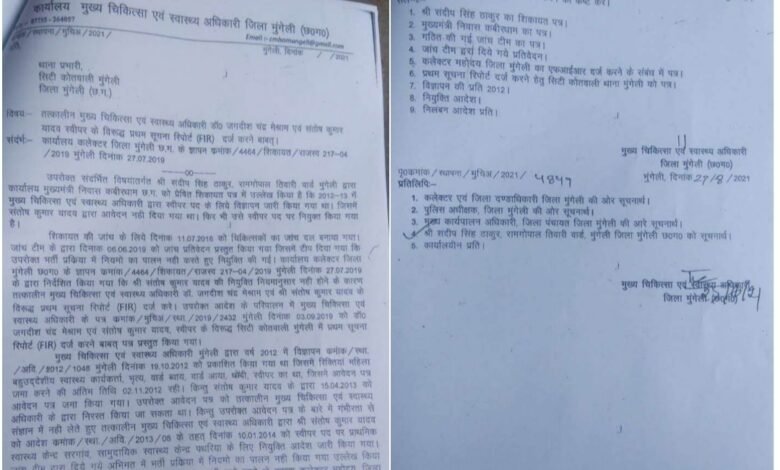 कार्यालय मुख्य चिकित्सा एवं स्वास्थ्य अधिकारी जिला मुंगेली (छ०ग०)
07755-264057
Email :- cmhomungeli@gmail.com
/स्थापना/मुचिअ/2021/ मुंगेली, दिनांक / /2021
प्रति,
थाना प्रभारी,
सिटी कोतवाली मुंगेली
जिला मुंगेली (छ.ग.)
विषय:- तत्कालीन मुख्य चिकित्सा एवं स्वास्थ्य अधिकारी डॉ० जगदीश चंद्र मेश्राम एवं संतोष कुमार
यादव स्वीपर के विरूद्ध प्रथम सूचना रिपोर्ट (FIR) दर्ज करने बाबत्।
संदर्भ:- कार्यालय कलेक्टर जिला मुंगेली छ.ग. के ज्ञापन कमांक/4464/शिकायत/राजस्व 217-04
/2019 मुंगेली दिनांक 27.07.2019
---00---
उपरोक्त संदर्भित विषयांतर्गत श्री सदीप सिंह ठाकुर, रामगोपाल तिवारी वार्ड मुंगेली द्वारा
कार्यालय मुख्यमंत्री निवास कबीरधाम छ.ग. को प्रेषित शिकायत पत्र में उल्लेख किया है कि 2012-13 में
मुख्य चिकित्सा एवं स्वास्थ्य अधिकारी द्वारा स्वीपर पद के लिये विज्ञापन जारी किया गया था। जिसमें
संतोष कुमार यादव द्वारा आवेदन नही दिया गया था। फिर भी उसे स्वीपर पद पर नियुक्त किया गया
है।
शिकायत की जांच के लिये दिनांक 11.07.2016 को चिकित्सकों का जांच दल बनाया गया।
जांच टीम के द्वारा दिनांक 06.06.2019 को जांच प्रतिवेदन प्रस्तुत किया गया जिसमें टीप दिया गया कि
उपरोक्त भर्ती प्रकिया में नियमो का पालन नही करते हुए नियुक्ति की गई। कार्यालय कलेक्टर जिला
मुंगेली छ०ग० के ज्ञापन कमांक/4464/शिकायत/राजस्व 217-04/2019 मुंगेली दिनांक 27.07.2019
के द्वारा निर्देशित किया गया कि श्री संतोष कुमार यादव की नियुक्ति नियमानुसार नही होने के कारण
तत्कालीन मुख्य चिकित्सा एवं स्वास्थ्य अधिकारी डॉ. जगदीश चंद्र मेश्राम एवं श्री संतोष कुमार यादव के
विरूद्ध प्रथम सूचना रिपोर्ट (FIR) दर्ज करे। उपरोक्त आदेश के परिपालन में मुख्य चिकित्सा एवं
स्वास्थ्य अधिकारी के पत्र कमांक/मुचिअ/स्था./2019/2432 मुंगेली दिनांक 03.09.2019 को डॉ०
जगदीश चंद्र मेश्राम एवं संतोष कुमार यादव, स्वीपर के विरूद्ध सिटी कोतवाली मुंगेली में प्रथम सूचना
रिपोर्ट (FIR) दर्ज करने बाबत् पत्र प्रस्तुत किया गया।
मुख्य चिकित्सा एवं स्वास्थ्य अधिकारी मुंगेली द्वारा वर्ष 2012 में विज्ञापन कमांक/स्था.
/अवि./2012/1048 मुंगेली दिनांक 19.10.2012 को प्रकाशित किया गया था जिसमें रिक्तियां महिला
बहुउद्देशीय स्वास्थ्य कार्यकर्ता, भृत्य, वार्ड ब्वाय, वार्ड आया, धोबी, स्वीपर का था, जिसमे आवेदन पत्र
जमा करने की अंतिम तिथि 02.11.2012 रही। किन्तु संतोष कुमार यादव के द्वारा 15.04.2013 को
आवेदन पत्र जमा किया गया। उपरोक्त आवेदन पत्र को तत्कालीन मुख्य चिकित्सा एवं स्वास्थ्य
अधिकारी के द्वारा निरस्त किया जा सकता था। किन्तु उपरोक्त आवेदन पत्र के बारे में गंभीरता से
संज्ञान में नही लेते हुए तत्कालीन मुख्य चिकित्सा एवं स्वास्थ्य अधिकारी द्वारा श्री संतोष कुमार यादव
को आदेश कमांक/स्था./अवि./2013/08 के तहत दिनांक 10.01.2014 को स्वीपर पद पर प्राथमिक
स्वास्थ्य केन्द्र सरगांव, सामुदायिक स्वास्थ्य केन्द्र पथरिया के लिए नियुक्ति आदेश जारी किया गया।
जांच टीम द्वारा दिये गये अभिमत में भर्ती प्रकिया में नियमो का पालन नही किया गया उल्लेख किया
1. श्री सदीप सिंह ठाकुर का शिकायत पत्र।
2. मुख्यमंत्री निवास कबीरधाम का पत्र।
3. गठित की गई जांच टीम का पत्र।
4. जांच टीम द्वारा दिये गये प्रतिवेदन।
5. कलेक्टर महोदय जिला मुंगेली का एफआईआर दर्ज करने के संबंध में पत्र।
6. प्रथम सूचना रिपोर्ट दर्ज करने हेतु सिटी कोतवाली थाना मुंगेली को पत्र।
7. विज्ञापन की प्रति 2012।
8. नियुक्ति आदेश।
9. निलंबन आदेश प्रति।
मुख्य चिकित्सा एवं स्वास्थ्य अधिकारी
जिला मुंगेली (छ०ग०)
पृ०कमांक/स्थापना/मुचिअ/2021/ 4847 मुंगेली, दिनांक 27/8/2021
प्रतिलिपि:-
1. कलेक्टर एवं जिला दण्डाधिकारी जिला मुंगेली की ओर सूचनार्थ।
2. पुलिस अधीक्षक, जिला मुंगेली की ओर सूचनार्थ।
3. मुख्य कार्यपालन अधिकारी, जिला पंचायत जिला मुंगेली की आरे सूचनार्थ।
4. श्री सदीप सिंह ठाकुर, रामगोपाल तिवारी वार्ड, मुंगेली जिला मुंगेली छ०ग० को सूचनार्थ।
5. कार्यालयीन प्रति।
मुख्य चिकित्सा एवं स्वास्थ्य अधिकारी
जिला मुंगेली (छ०ग०)